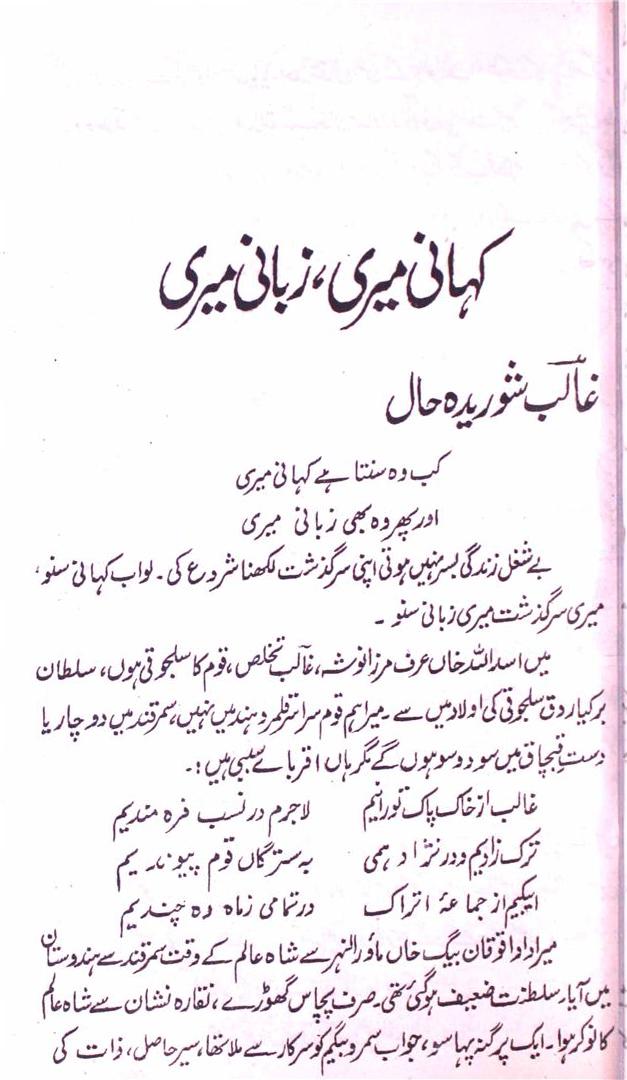 کہانی میری، زبانی میری
غالب شوریدہ حال
کب وہ سنتا ہے کہانی میری
اور پھر وہ بھی زبانی میری
بے شغل زندگی بسر نہیں ہوتی اپنی سرگذشت لکھنا شروع کی۔ لو اب کہانی سنو،
میری سرگذشت میری زبانی سنو۔
میں اسد اللہ خاں عرف مرزا نوشہ، غالب تخلص، قوم کا سلجوقی ہوں، سلطان
برکیاروق سلجوقی کی اولاد میں سے۔ میرا ہم قوم سراسر قلمرو ہند میں نہیں، سمرقند میں دو چار یا
دست قبچاق میں سو دو سو ہوں گے مگر ہاں اقربائے سببی ہیں:۔
غالب از خاک پاک تورانیم لاجرم در نسب فرہ مندیم
ترک زادیم و در نژاد ہمی بہ سترگان قوم پیوندیم
ایبکیم از جماعۂ اتراک در تمامی زماہ دہ چندیم
میرا دادا قوقان بیگ خاں ماوراء النہر سے شاہ عالم کے وقت سمرقند سے ہندوستان
میں آیا۔ سلطنت ضعیف ہو گئی تھی۔ صرف پچاس گھوڑے، نقارہ نشان سے شاہ عالم
کا نوکر ہوا۔ ایک پرگنہ پہاسو، جو اب سمرو بیگم کو سرکار سے ملا تھا، سیر حاصل، ذات کی